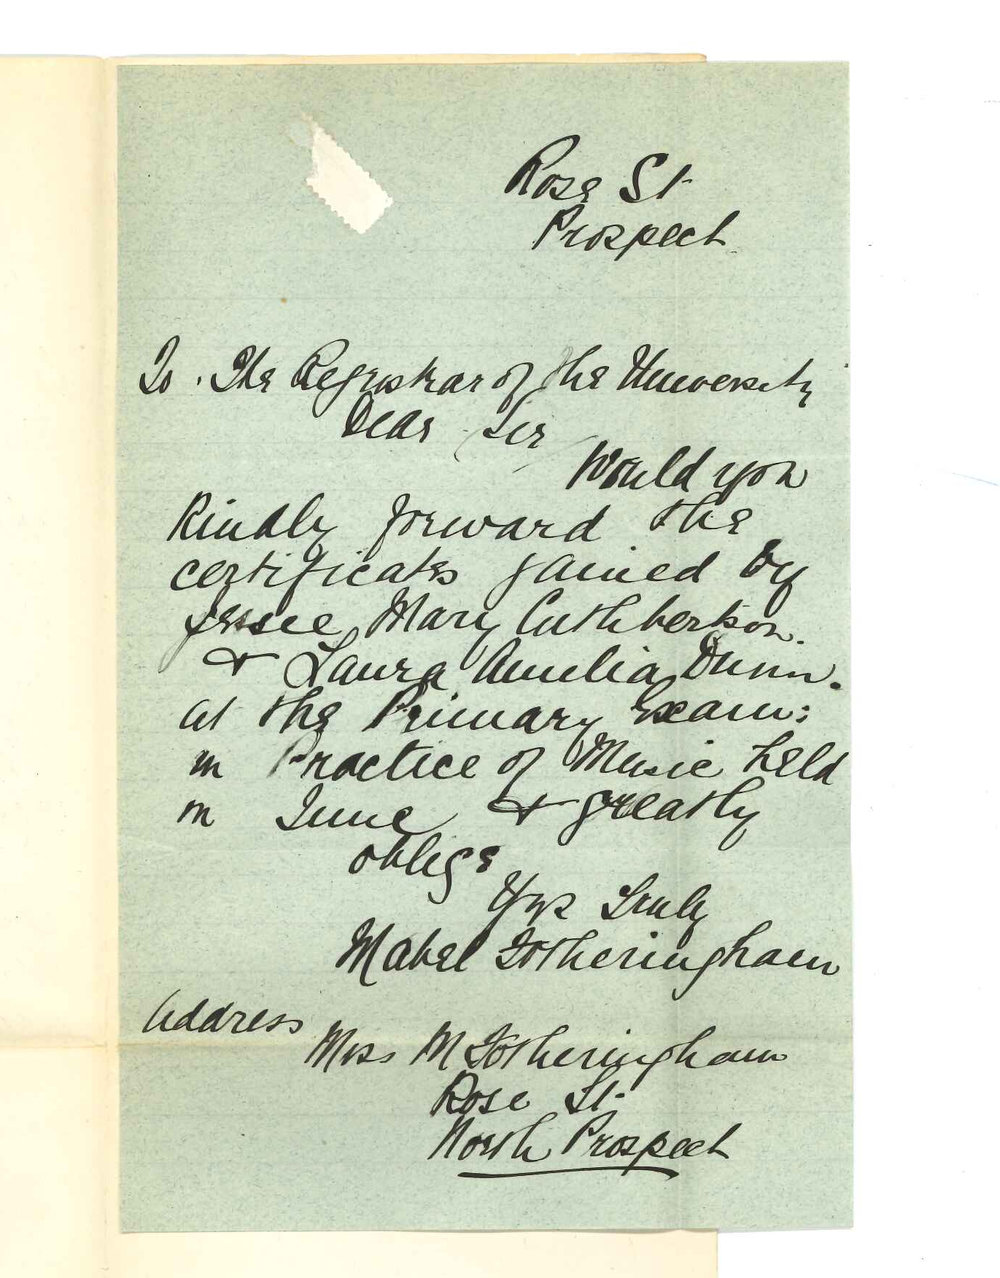 Rose St
Prospect
To. The Registrar of the University
Dear Sir
Would you
kindly forward the
certificates gained by
Jessie Mary Cuthbertson.
& Laura Amelia Dunn.
at the Primary Exam:
in Practice of Music held
in June & greatly
oblige
Yrs Truly
Mabel Fotheringham
Address
Miss M Fotheringham
Rose St.
North Prospect